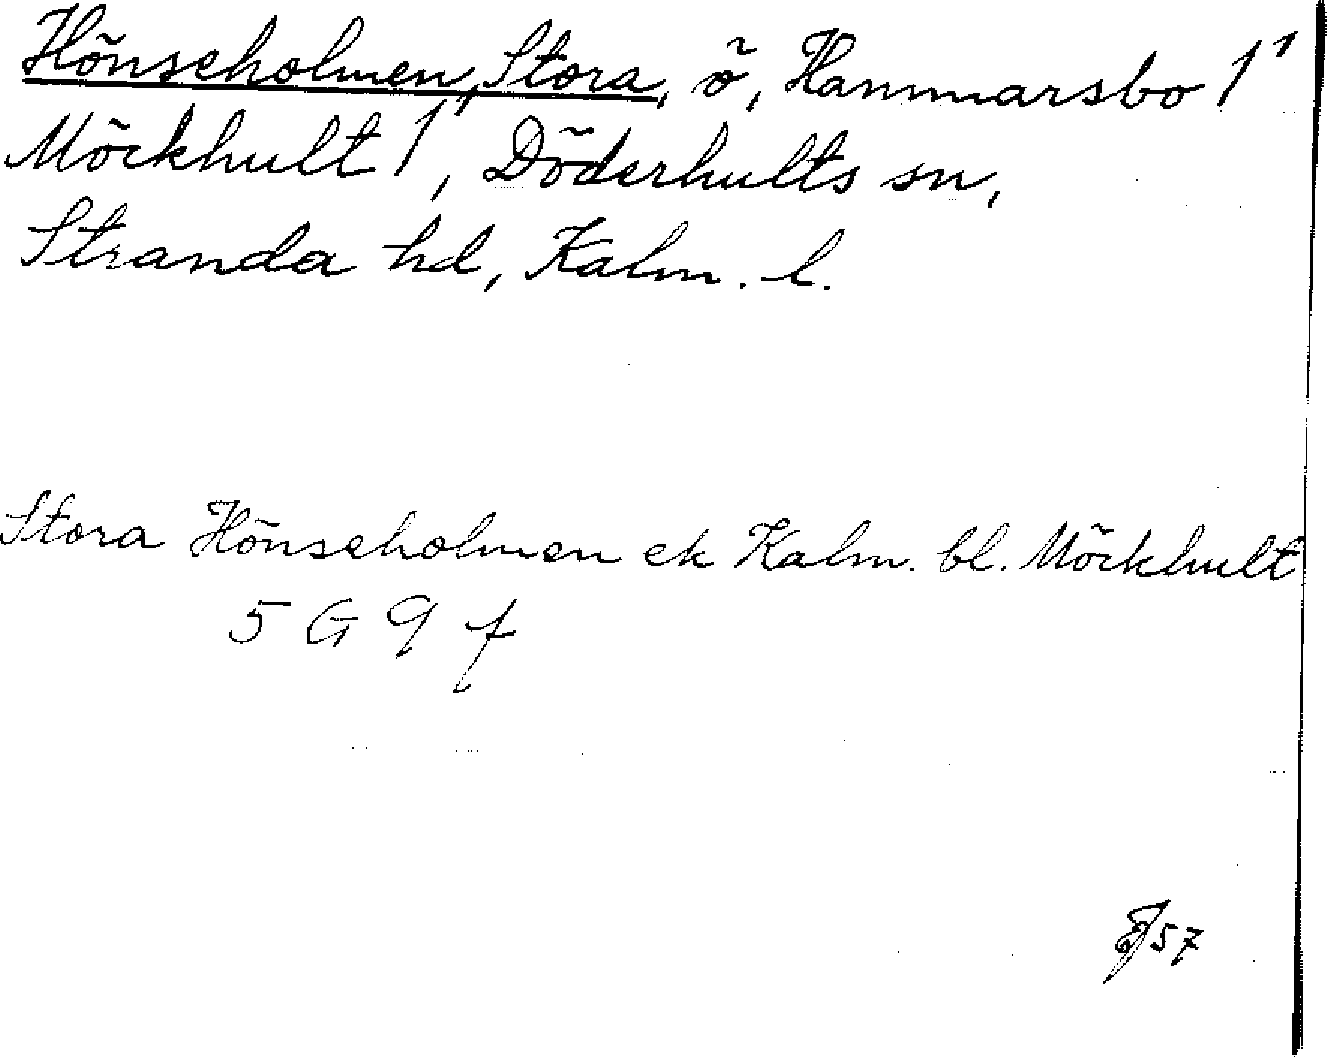 Hönseholmen, Stora, ö, Hammarsbo 1¹
Möckhult 1, Döderhults sn,
Stranda hd, Kalm. l.
Stora Hönseholmen ek Kalm. bl. Möckhult
5 G 9 f
57